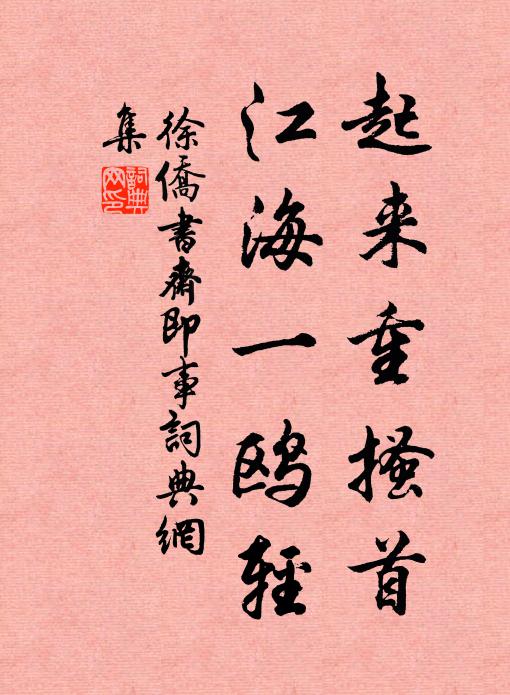 起来重搔首
江海一鸥輕
徐僑書齋即事詞典網
集
詞典
网印